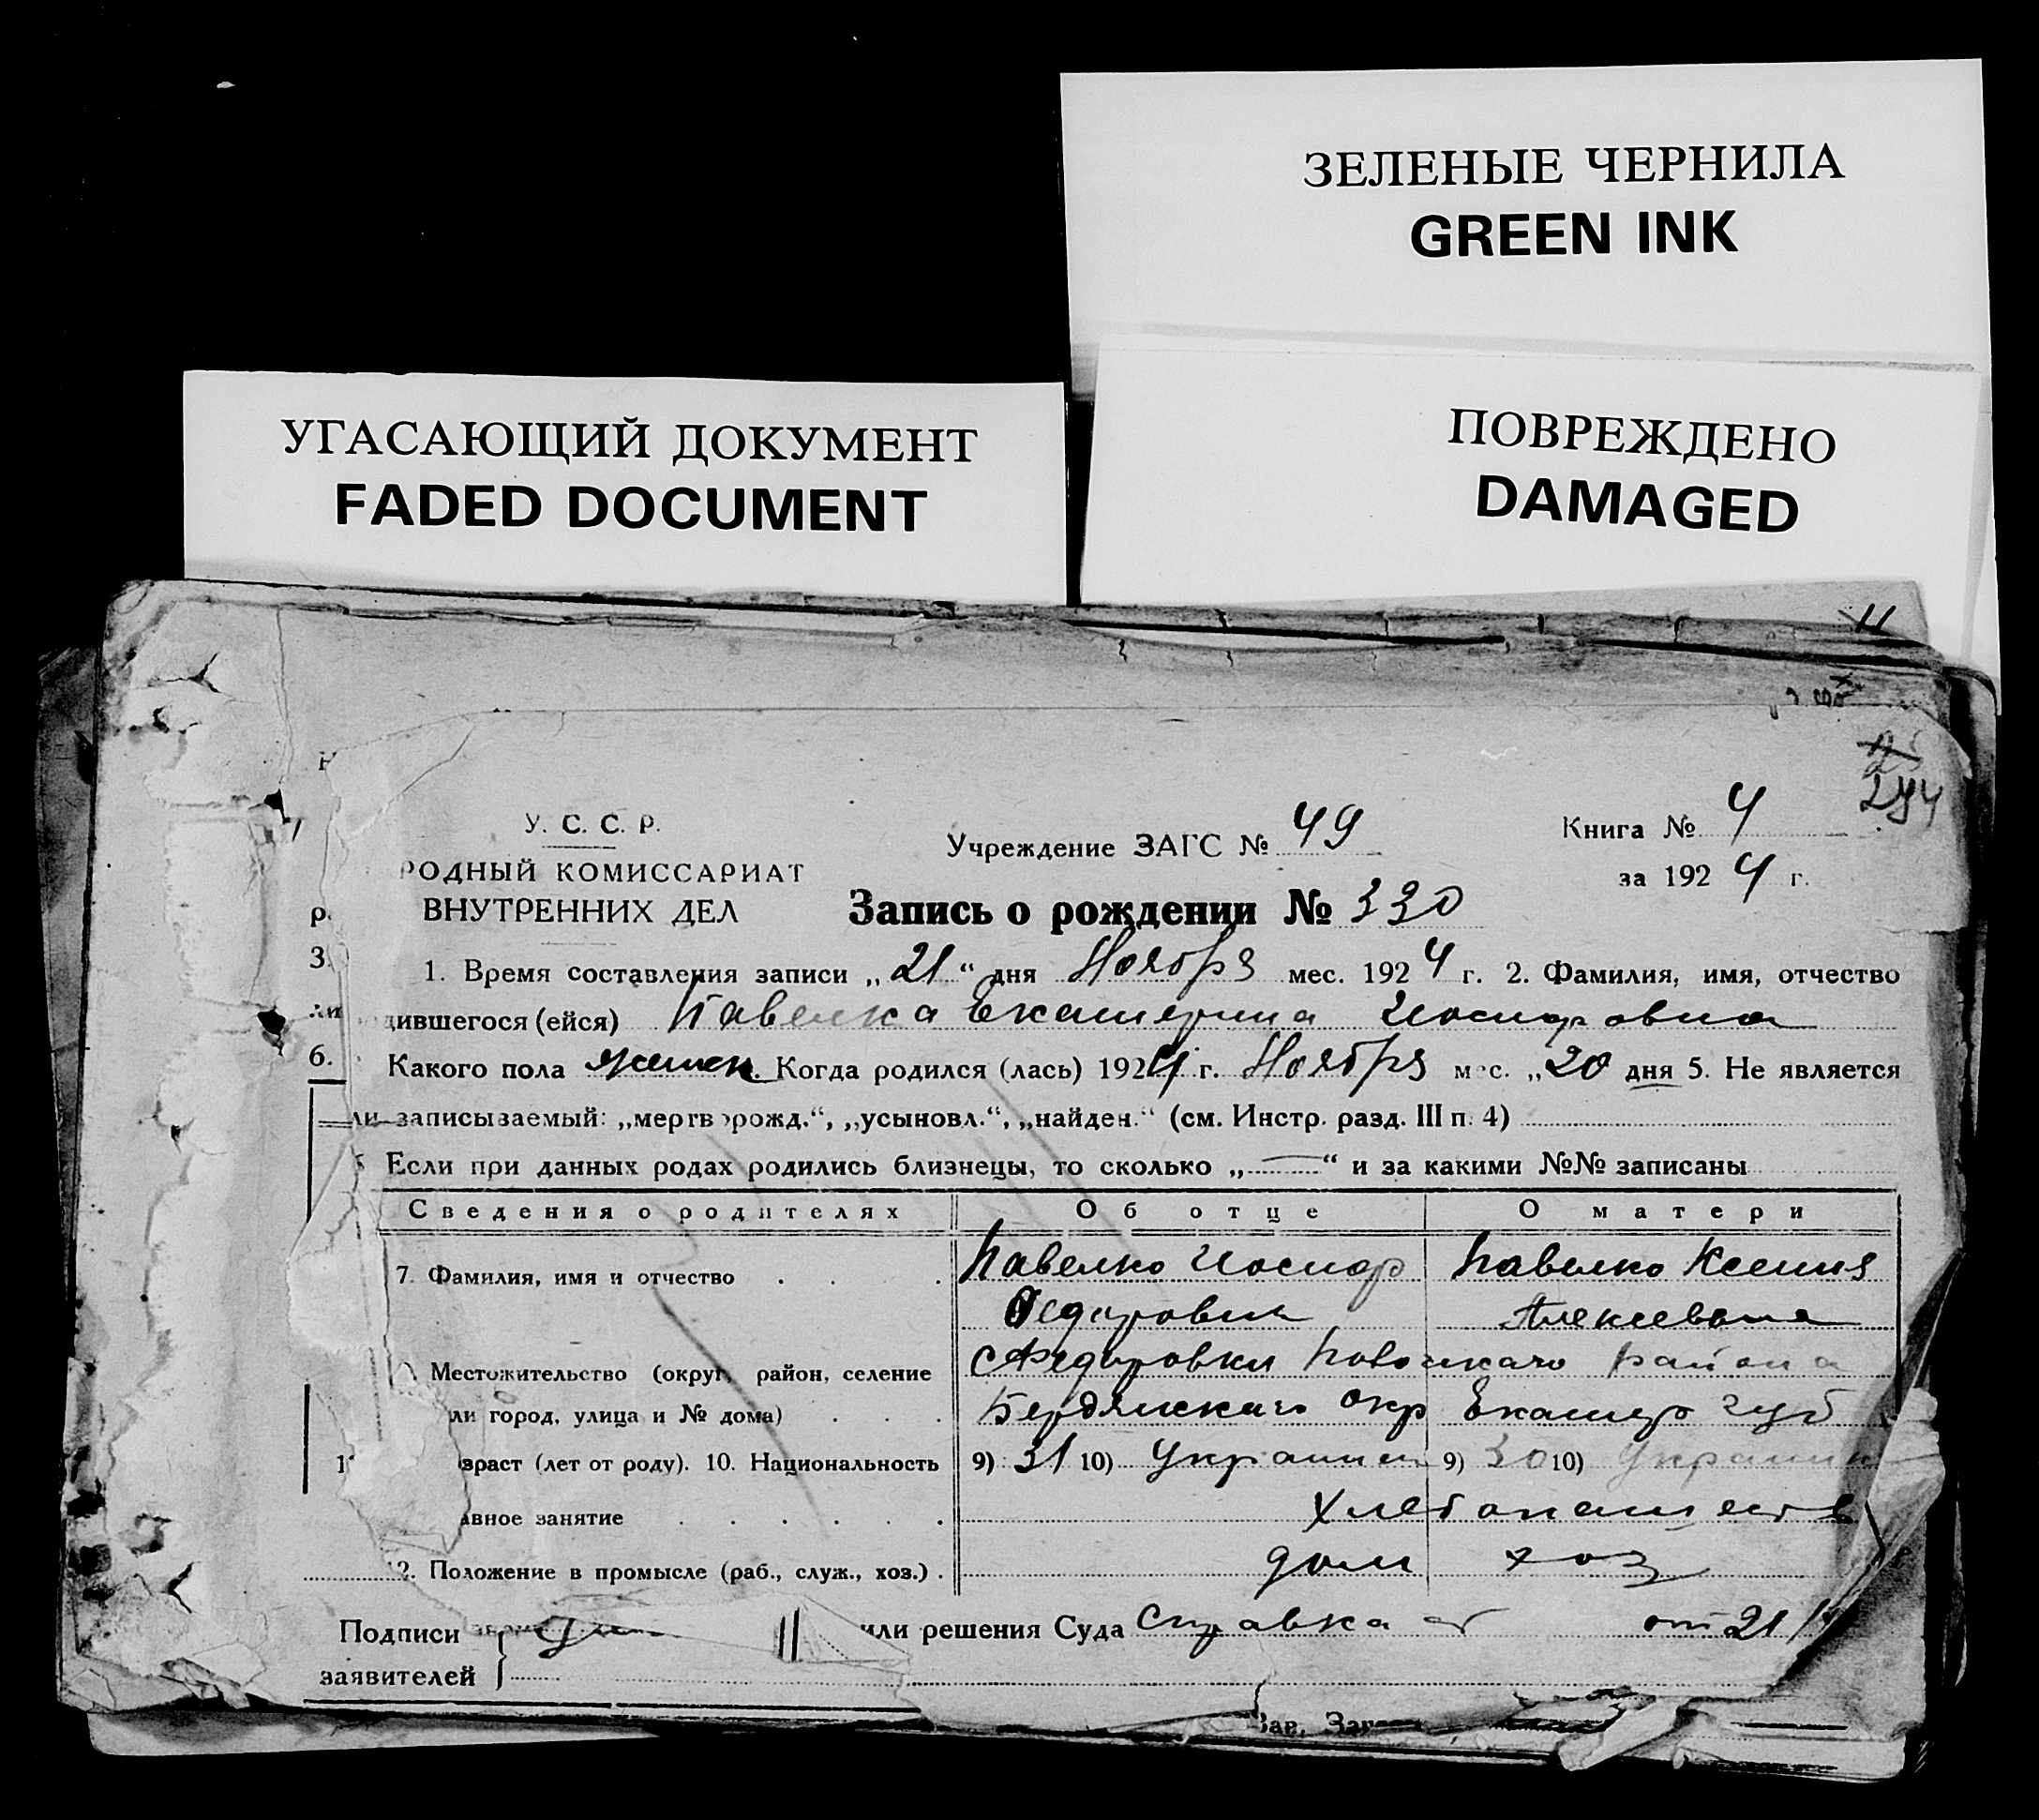 ЗЕЛЕНЫЕ ЧЕРНИЛА
GREEN INK
УГАСАЮЩИЙ ДОКУМЕНТ
FADED DOCUMENT
ПОВРЕЖДЕНО
DAMAGED
11
У. С. С. Р.
РОДНЫЙ КОМИССАРИАТ
ВНУТРЕННИХ ДЕЛ
Учреждение ЗАГС № 49
Книга № 4
за 1924 г.
Запись о рождении № 330
1. Время составления записи „21“ дня Ноября мес. 1924 г. 2. Фамилия, имя, отчество
дившегося (ейся) Павелка Екатерина Иосифовна
Какого пола женск. Когда родился (лась) 1924 г. Ноября мес. „20 дня 5. Не является
ли записываемый: „мертворожд.“, „усыновл.“, „найден.“ (см. Инстр. разд. III п. 4)
Если при данных родах родились близнецы, то сколько „—“ и за какими №№ записаны
Сведения о родителях Об отце О матери
7. Фамилия, имя и отчество Павелко Иосиф Павелко Ксения
Федорович Алексеевна
Местожительство (округ, район, селение с Федоровки района
ли город, улица и № дома) Бердянскаго окр Екатер губ
зраст (лет от роду). 10. Национальность 9) 31 10) Украин 9) 30 10) Украин
авное занятие Хлебопашеств
2. Положение в промысле (раб., служ., хоз.) дом хоз
Подписи или решения Суда Справка от 21
заявителей
Зав. Заг